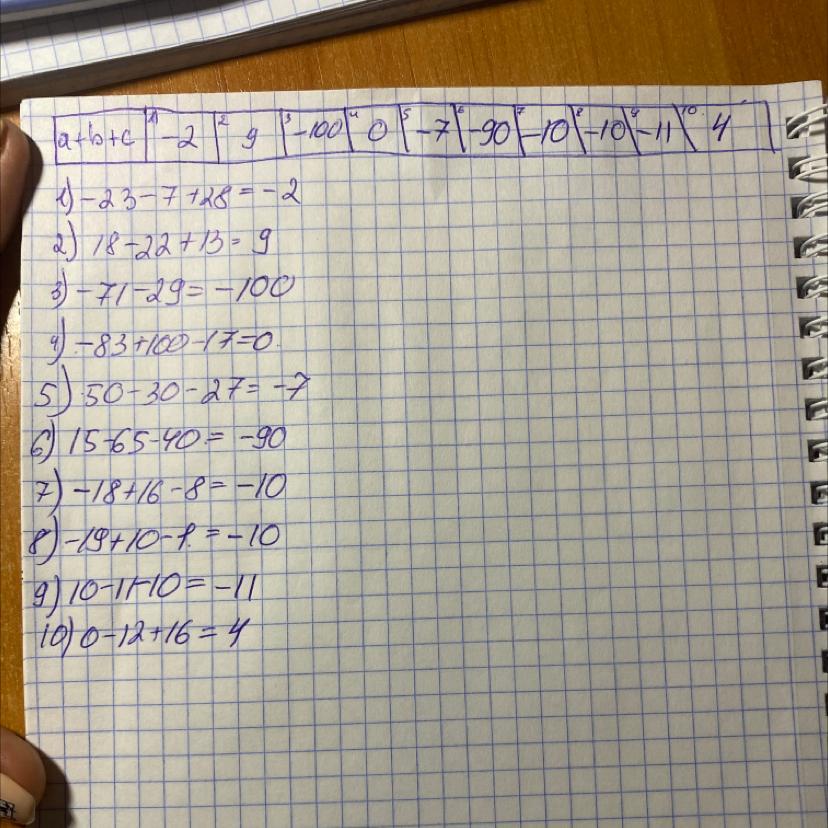 a+b+c 1) -2 2 9 3 -100 4 0 5 -7 6 -90 7 -10 8 -10 9 -11 10. 4
1) -23-7+28=-2
2) 18-22+13=9
3) -71-29=-100
4) -83+100-17=0
5) 50-30-27=-7
6) 15-65-40=-90
7) -18+16-8=-10
8) -19+10-1=-10
9) 10-11-10=-11
10) 0-12+16=4